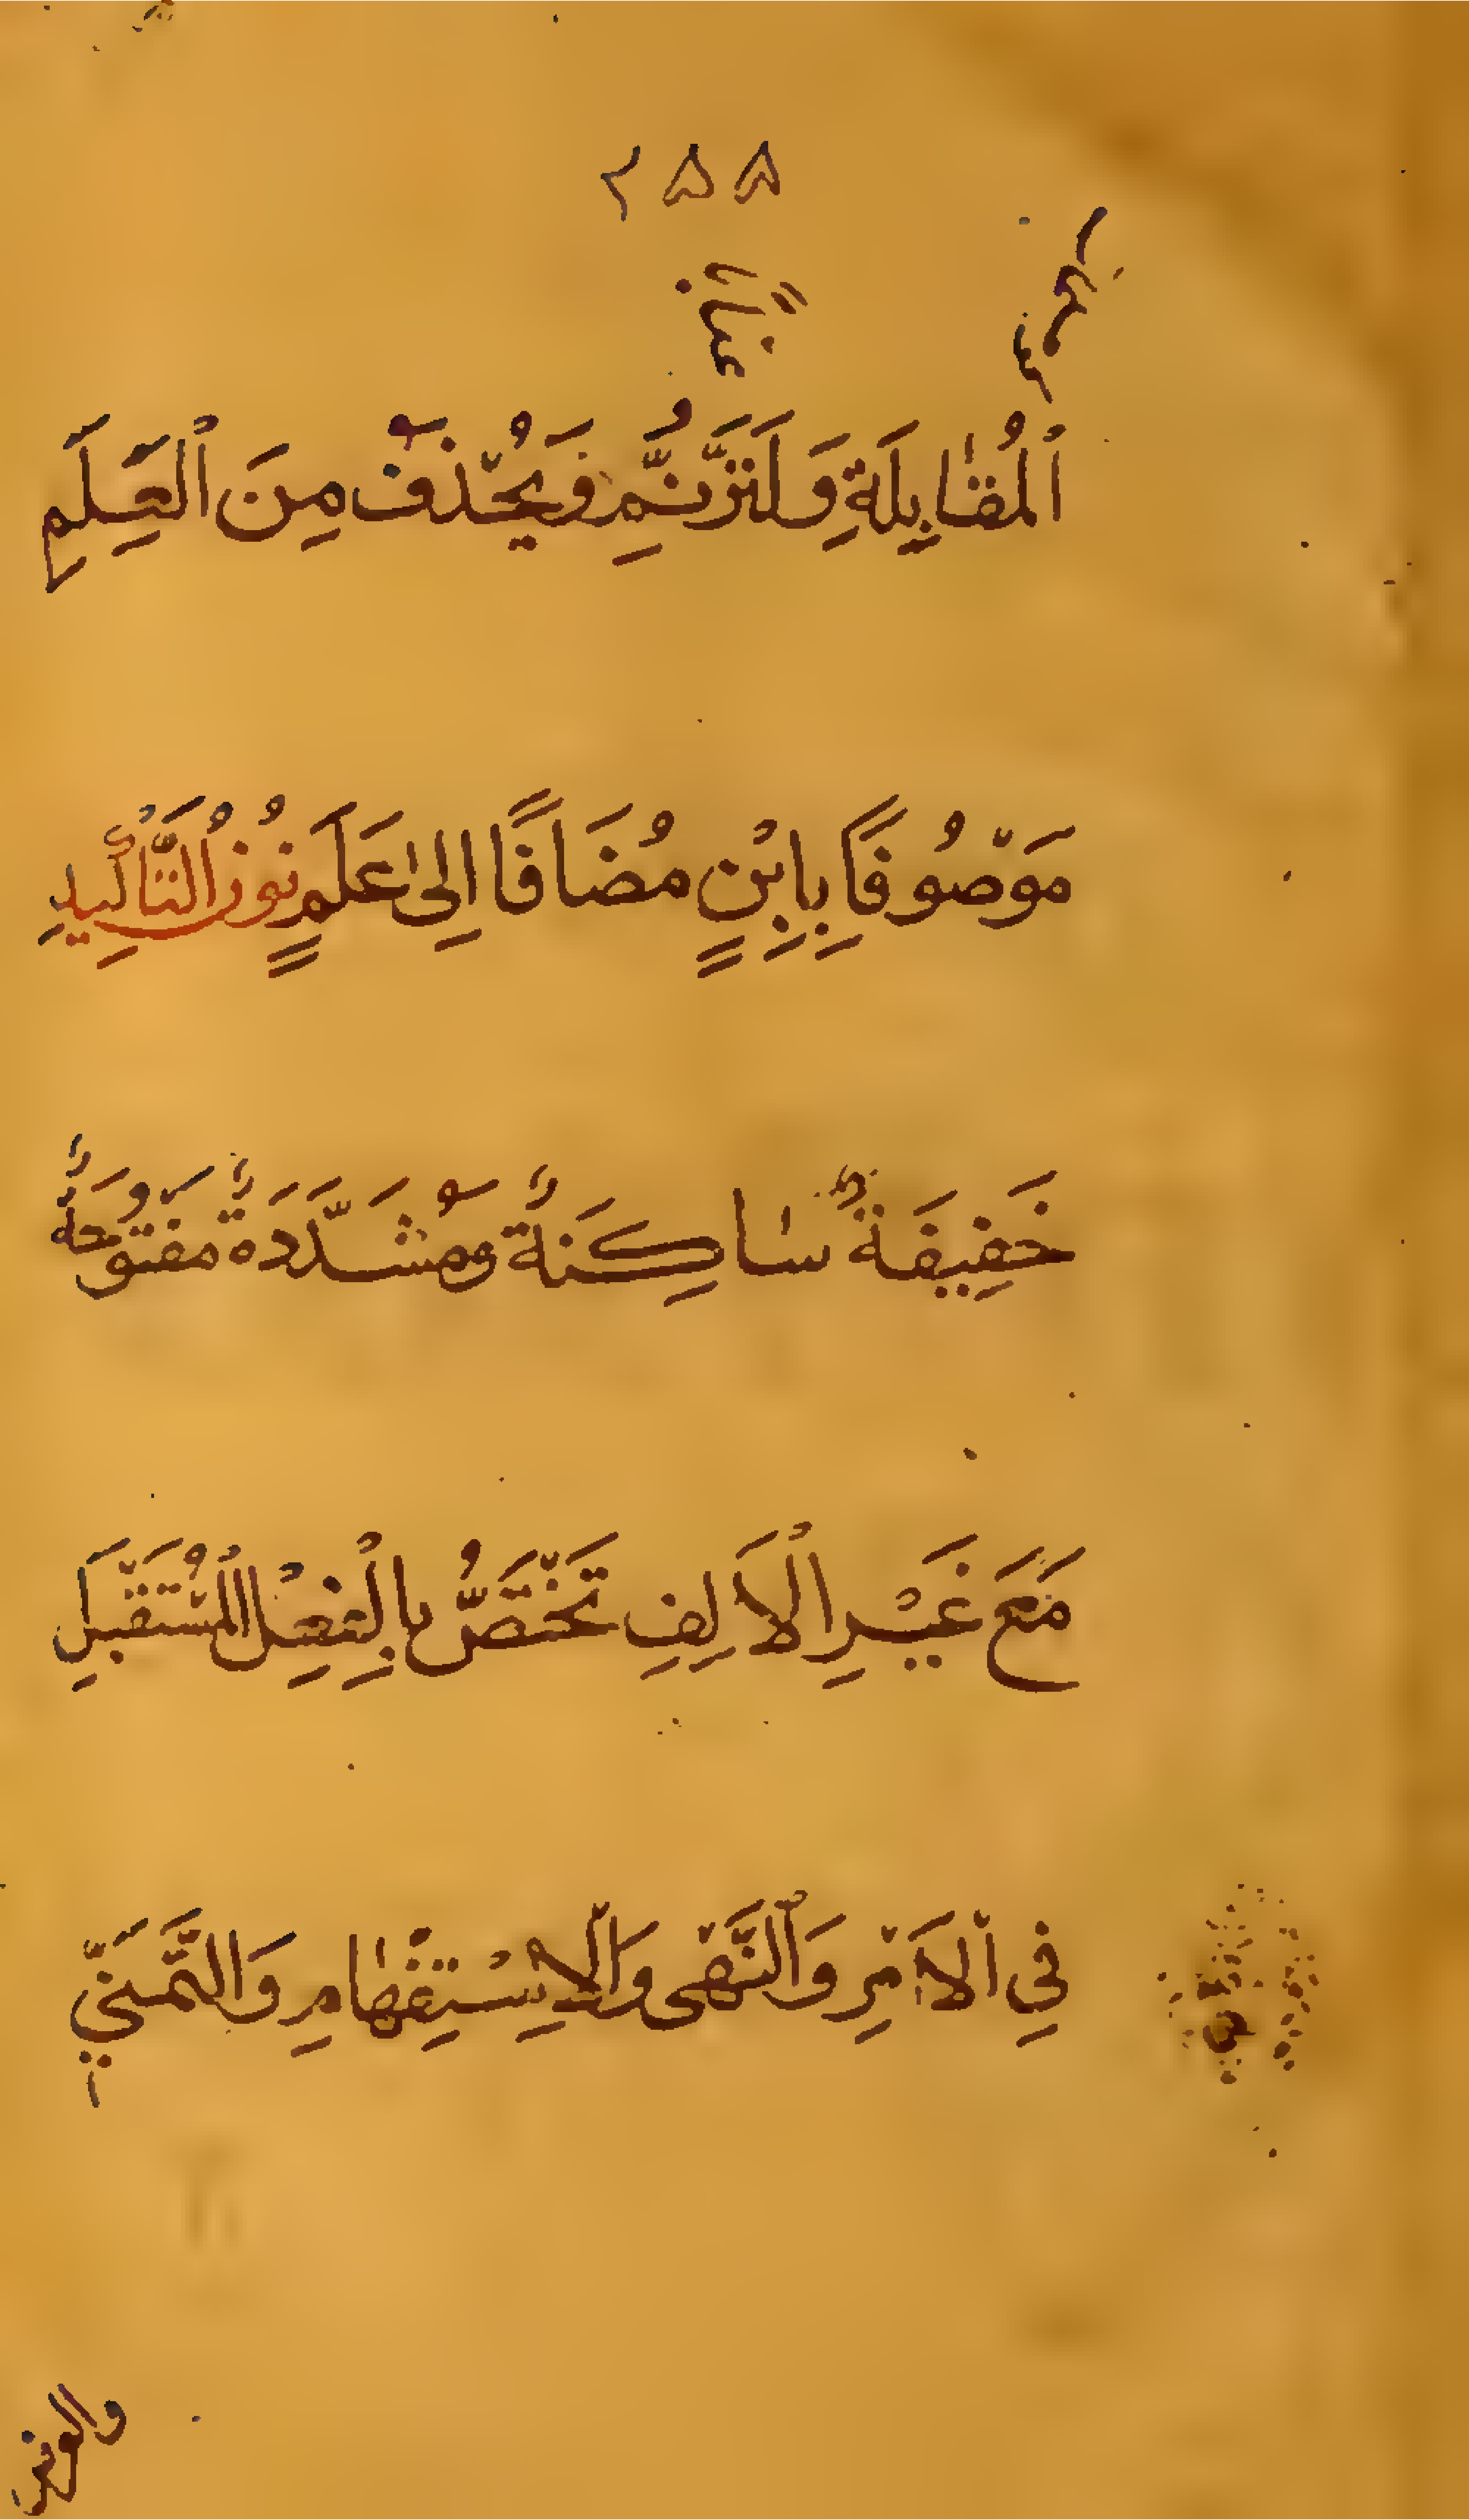 ٢٨٨
ٱلْمُقَابِلَةِ وَلَتَرَنُّمِ وَيُحْذَفُ مِنَ ٱلْعَلَمِ
مَوْصُوفًا بِابْنٍ مُضَافًا اِلىٰ عَلَمٍ نُونُ التَّأْكِيدِ
خَفِيفَةٌ سَاكِنَةٌ ومُشَدَّدَةٌ مَفْتُوحَةٌ
مَعَ غَيْرِ الْاَلِفِ تَخْتَصُّ بِالْفِعْلِ الْمُسْتَقْبَلِ
فِي الْاَمْرِ وَالنَّهْىِ وَالْاِسْتِفْهَامِ وَالتَّمَنِّي